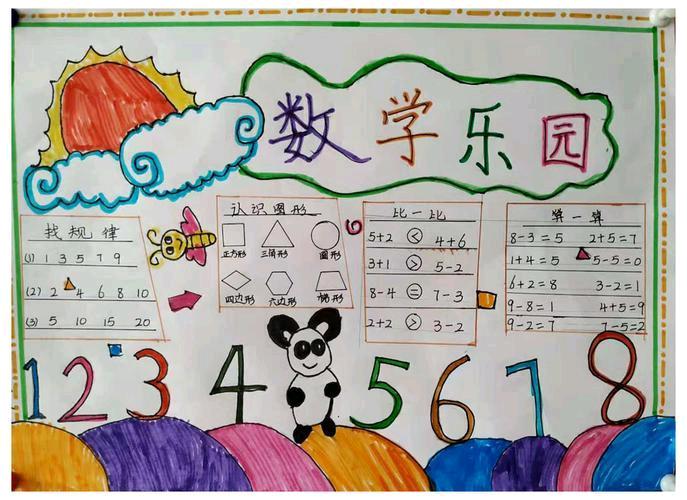 数学乐园
找规律
(1) 1 3 5 7 9
(2) 2 4 6 8 10
(3) 5 10 15 20
认识图形
正方形 三角形 圆形
四边形 六边形 梯形
比一比
5+2 < 4+6
3+1 > 5-2
8-4 = 7-3
2+2 > 3-2
算一算
8-3=5 2+5=7
1+4=5 5-5=0
6+2=8 3-2=1
9-8=1 4+5=9
9-2=7 7-5=2
1 2 3 4 5 6 7 8